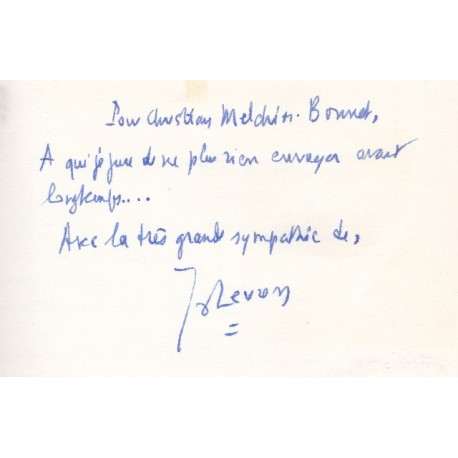 Pour Christian Melchior-Bonnet,
A qui je jure de ne plus rien envoyer avant
longtemps....
Avec la très grande sympathie de,